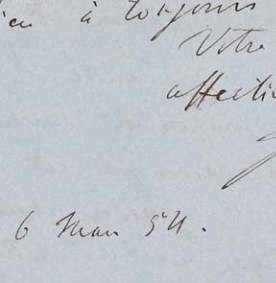 à toujours
Votre
affecti
6 Mars 54.